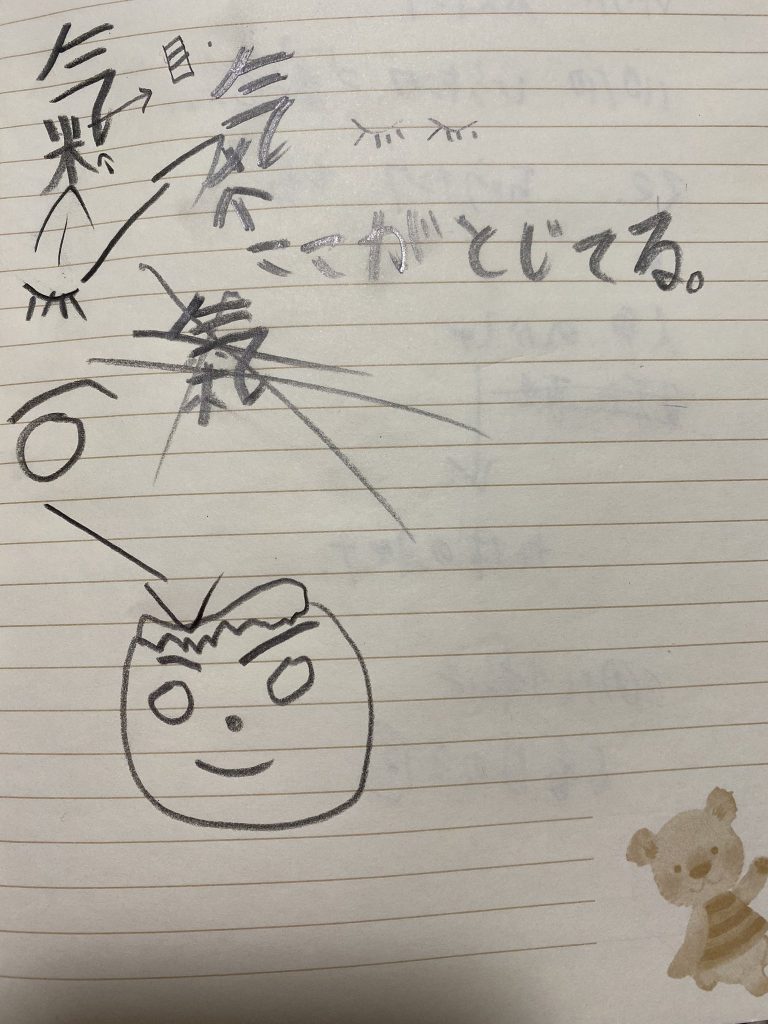 氣 目 気
ここがとじてる。
氣